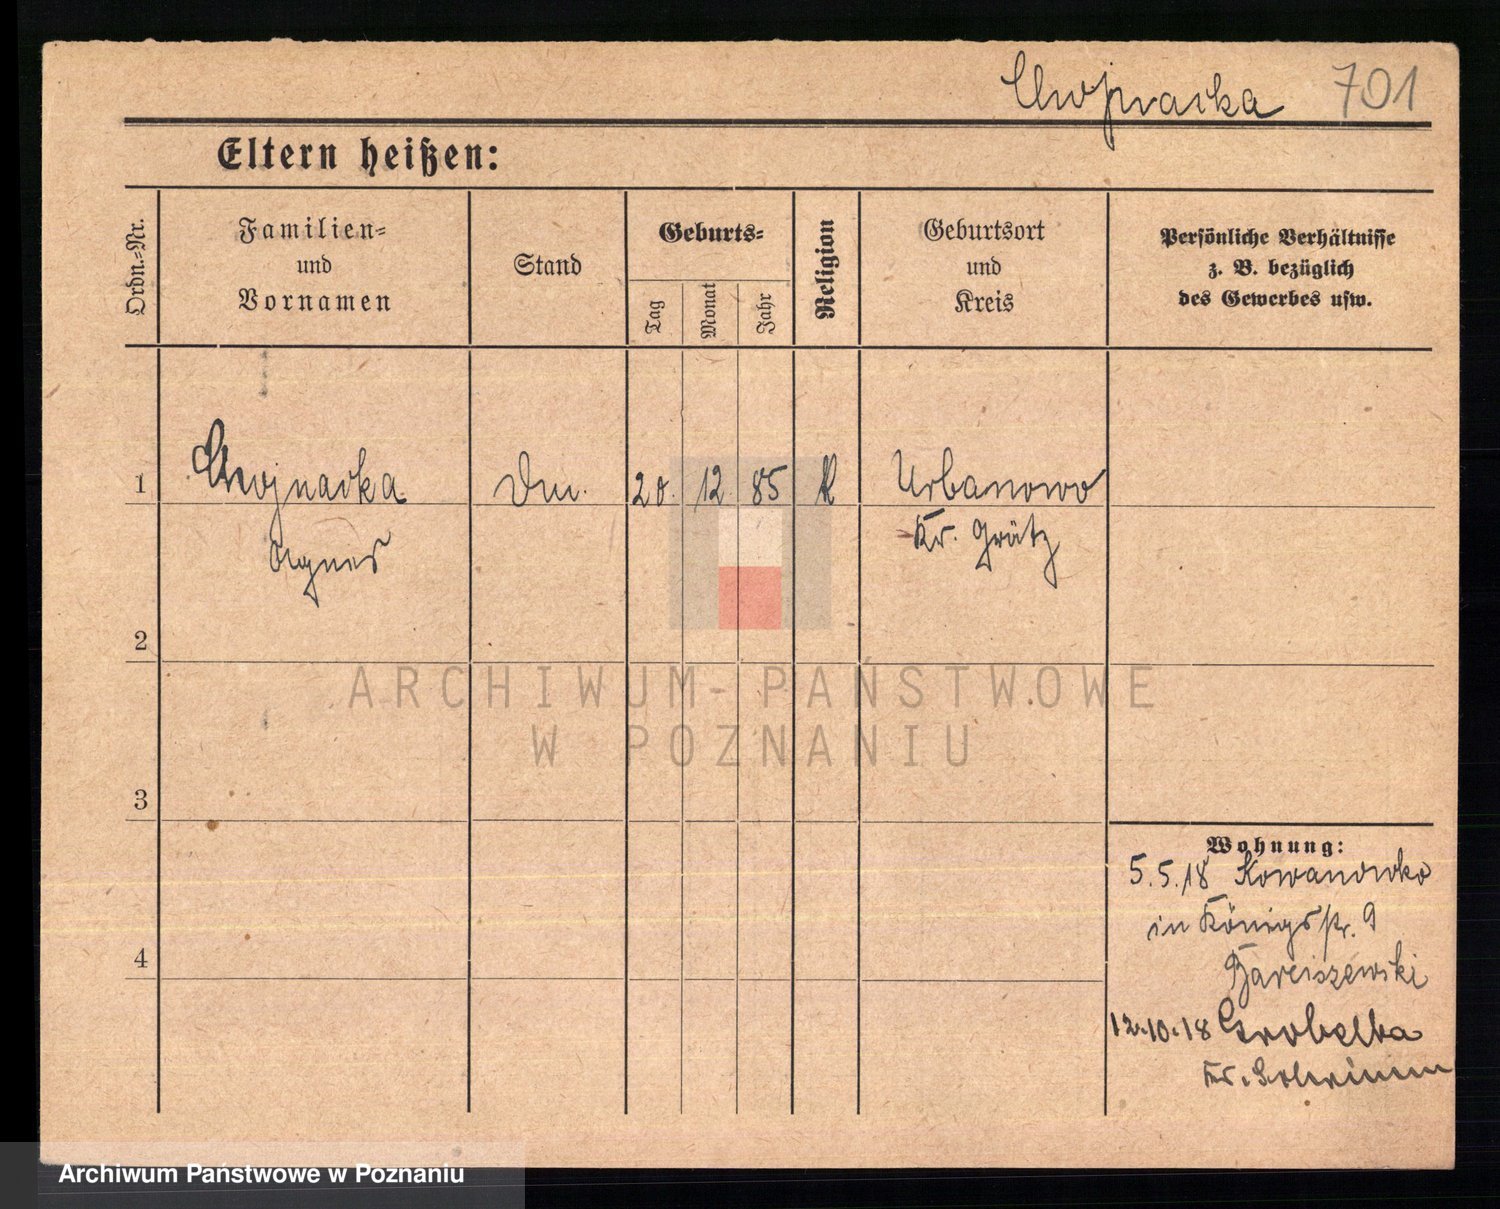 Chojnacka 701
Eltern heißen:
Ordn.-Nr.
Familien-
und
Vornamen
Stand
Geburts-
Tag
Monat
Jahr
Religion
Geburtsort
und
Kreis
Persönliche Verhältnisse
z. B. bezüglich
des Gewerbes usw.
1 Chojnacka 20. 12 85 K Urbanowo
Agnes Kr. Grätz
2
3
4
Wohnung:
5.5.18 Kowanowko
in Königsstr. 9
Barciszewski
12.10.18 Grobelka
ARCHIWUM PAŃSTWOWE
W POZNANIU
Archiwum Państwowe w Poznaniu